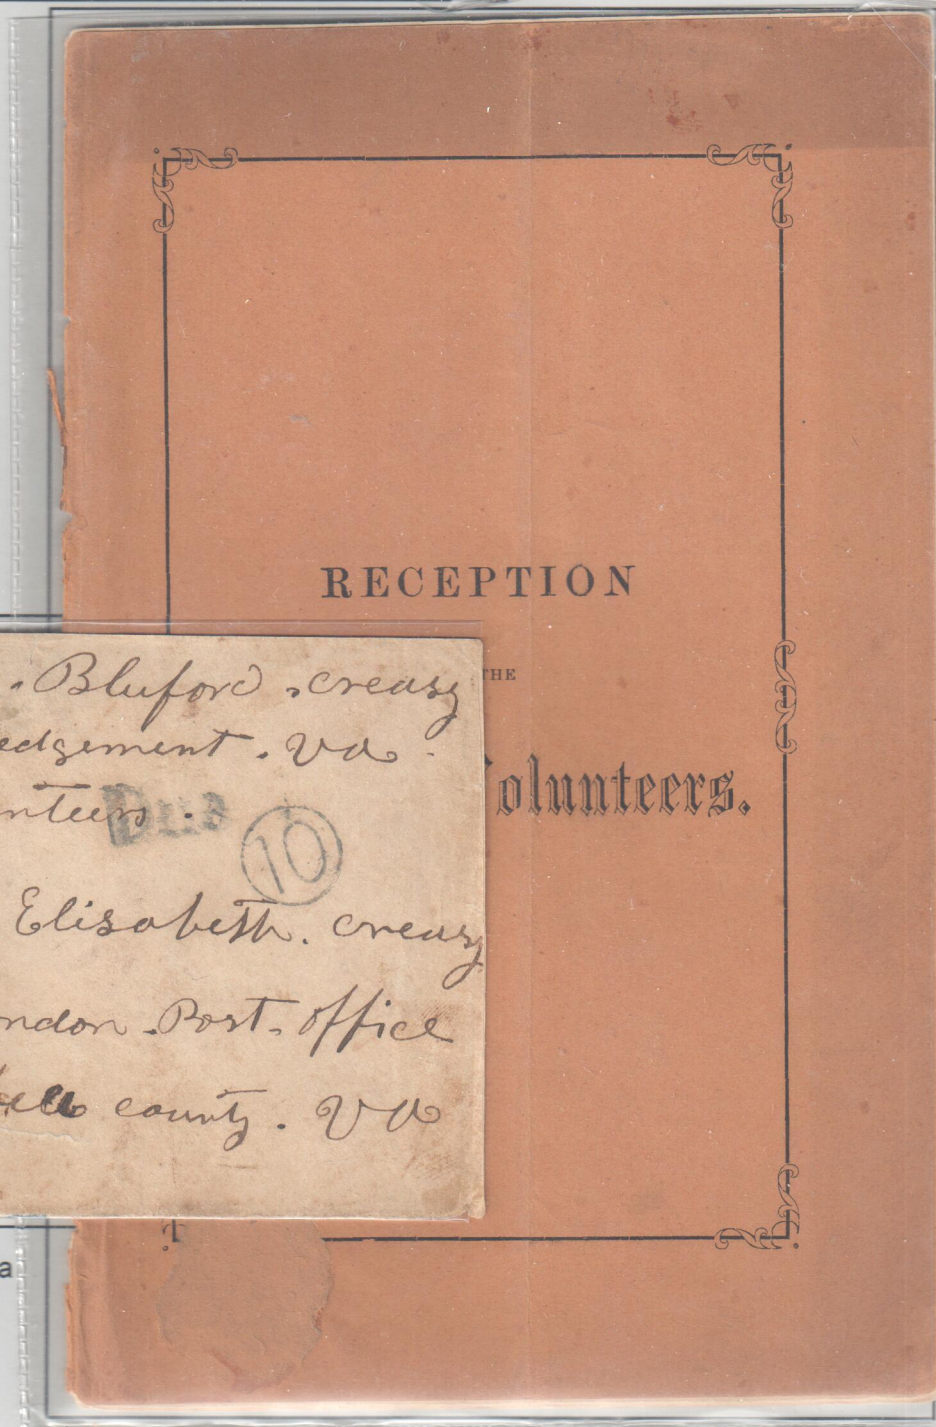 RECEPTION
THE
olunteers.
. Bluford . creasy
edgement . va .
nteers .
Due
10
Elisabeth . creasy
ndon . Post . office
ell county . va
a